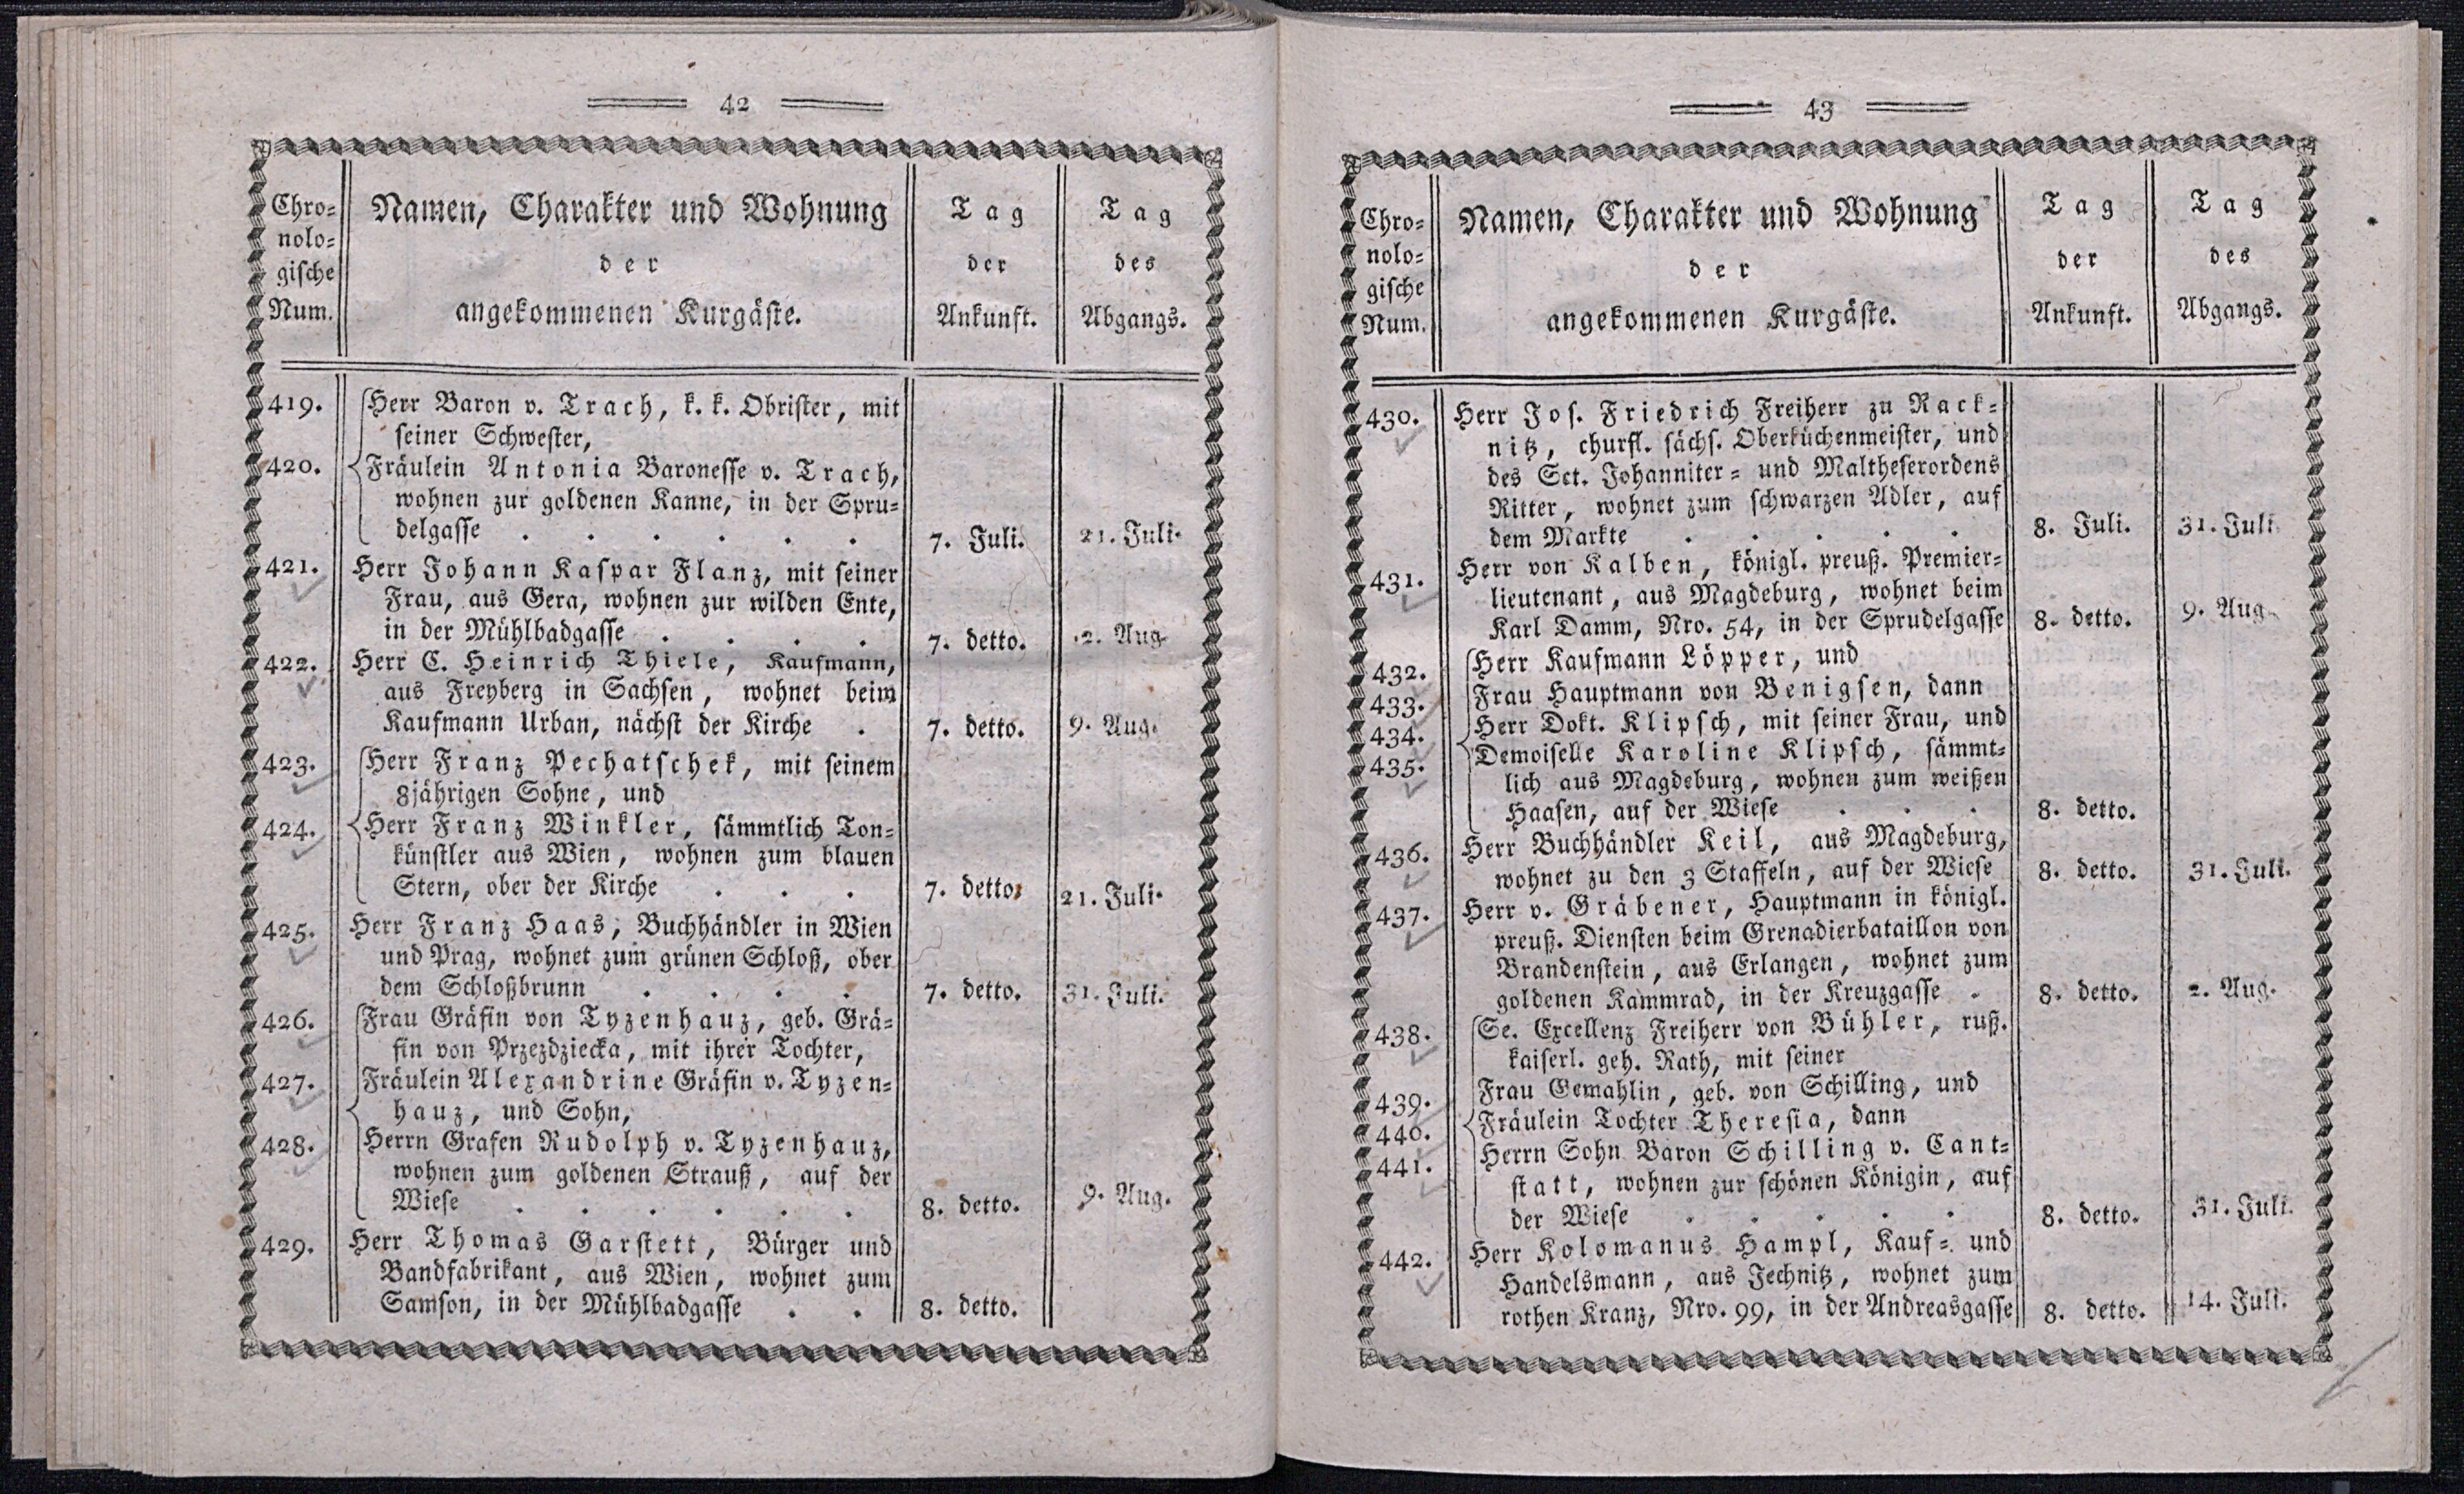 42
Chro-
nolo-
gische
Num.
Namen, Charakter und Wohnung
der
angekommenen Kurgäste.
Tag
der
Ankunft.
Tag
des
Abgangs.
419. Herr Baron v. Trach, k. k. Obrister, mit
seiner Schwester,
420. Fräulein Antonia Baronesse v. Trach,
wohnen zur goldenen Kanne, in der Spru-
delgasse . . . . . . 7. Juli. 21. Juli.
421. Herr Johann Kaspar Flanz, mit seiner
Frau, aus Gera, wohnen zur wilden Ente,
in der Mühlbadgasse . . . . 7. detto. 2. Aug.
422. Herr C. Heinrich Thiele, Kaufmann,
aus Freyberg in Sachsen, wohnet beim
Kaufmann Urban, nächst der Kirche . 7. detto. 9. Aug.
423. Herr Franz Pechatschek, mit seinem
8jährigen Sohne, und
424. Herr Franz Winkler, sämmtlich Ton-
künstler aus Wien, wohnen zum blauen
Stern, ober der Kirche . . . 7. detto. 21. Juli.
425. Herr Franz Haas, Buchhändler in Wien
und Prag, wohnet zum grünen Schloß, ober
dem Schloßbrunn . . . . 7. detto. 31. Juli.
426. Frau Gräfin von Tyzenhauz, geb. Grä-
fin von Przezdziecka, mit ihrer Tochter,
427. Fräulein Alexandrine Gräfin v. Tyzen-
hauz, und Sohn,
428. Herrn Grafen Rudolph v. Tyzenhauz,
wohnen zum goldenen Strauß, auf der
Wiese . . . . . . 8. detto. 9. Aug.
429. Herr Thomas Garstett, Bürger und
Bandfabrikant, aus Wien, wohnet zum
Samson, in der Mühlbadgasse . . 8. detto.
43
Chro-
nolo-
gische
Num.
Namen, Charakter und Wohnung
der
angekommenen Kurgäste.
Tag
der
Ankunft.
Tag
des
Abgangs.
430. Herr Jos. Friedrich Freiherr zu Rack-
nitz, churfl. sächs. Oberküchenmeister, und
des Sct. Johanniter- und Maltheserordens
Ritter, wohnet zum schwarzen Adler, auf
dem Markte . . . . . 8. Juli. 31. Juli.
431. Herr von Kalben, königl. preuß. Premier-
lieutenant, aus Magdeburg, wohnet beim
Karl Damm, Nro. 54, in der Sprudelgasse 8. detto. 9. Aug.
432. Herr Kaufmann Löpper, und
433. Frau Hauptmann von Benigsen, dann
434. Herr Dokt. Klipsch, mit seiner Frau, und
435. Demoiselle Karoline Klipsch, sämmt-
lich aus Magdeburg, wohnen zum weißen
Haasen, auf der Wiese . . . 8. detto.
436. Herr Buchhändler Keil, aus Magdeburg,
wohnet zu den 3 Staffeln, auf der Wiese 8. detto. 31. Juli.
437. Herr v. Gräbener, Hauptmann in königl.
preuß. Diensten beim Grenadierbataillon von
Brandenstein, aus Erlangen, wohnet zum
goldenen Kammrad, in der Kreuzgasse . 8. detto. 2. Aug.
438. Se. Excellenz Freiherr von Bühler, ruß.
kaiserl. geh. Rath, mit seiner
439. Frau Gemahlin, geb. von Schilling, und
440. Fräulein Tochter Theresia, dann
441. Herrn Sohn Baron Schilling v. Cant-
statt, wohnen zur schönen Königin, auf
der Wiese . . . . . 8. detto. 31. Juli.
442. Herr Kolomanus Hampl, Kauf- und
Handelsmann, aus Jechnitz, wohnet zum
rothen Kranz, Nro. 99, in der Andreasgasse 8. detto. 14. Juli.